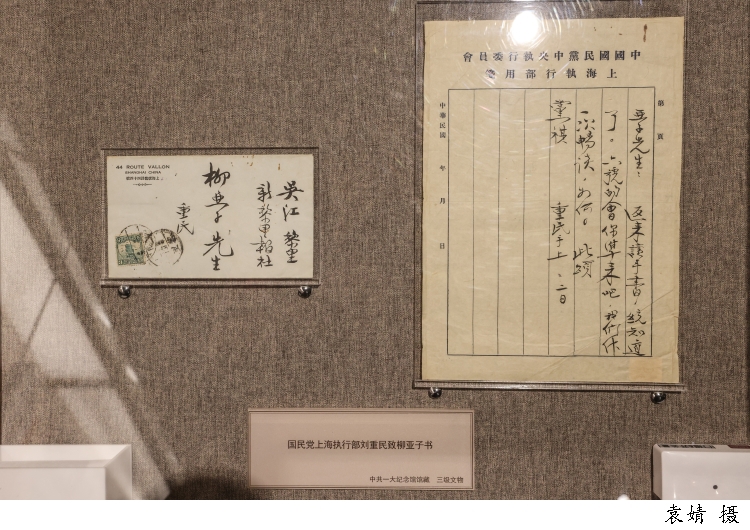 44 ROUTE VALLON
SHANGHAI CHINA
吳江 黎里
新黎里報社
柳亞子 先生
重民
中國國民黨中央執行委員會
上海執行部用箋
第 頁
亞子先生：返来讀手書，統知道
了。六號的會佀準来吧，我們作
一次暢談，如何。此頌
黨祺 重民上 二日
中華民國 年 月 日
国民党上海执行部刘重民致柳亚子书
中共一大纪念馆馆藏 三级文物
袁婧 摄